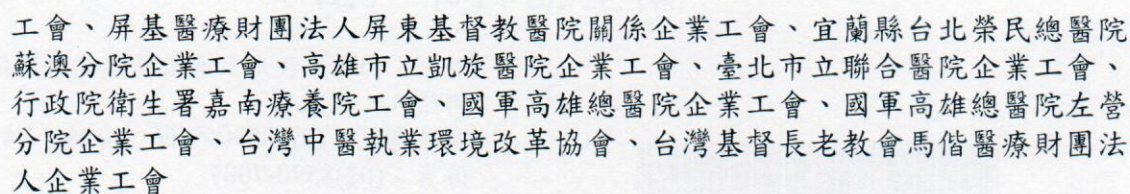 工會、屏基醫療財團法人屏東基督教醫院關係企業工會、宜蘭縣台北榮民總醫院
蘇澳分院企業工會、高雄市立凱旋醫院企業工會、臺北市立聯合醫院企業工會、
行政院衛生署嘉南療養院工會、國軍高雄總醫院企業工會、國軍高雄總醫院左營
分院企業工會、台灣中醫執業環境改革協會、台灣基督長老教會馬偕醫療財團法
人企業工會